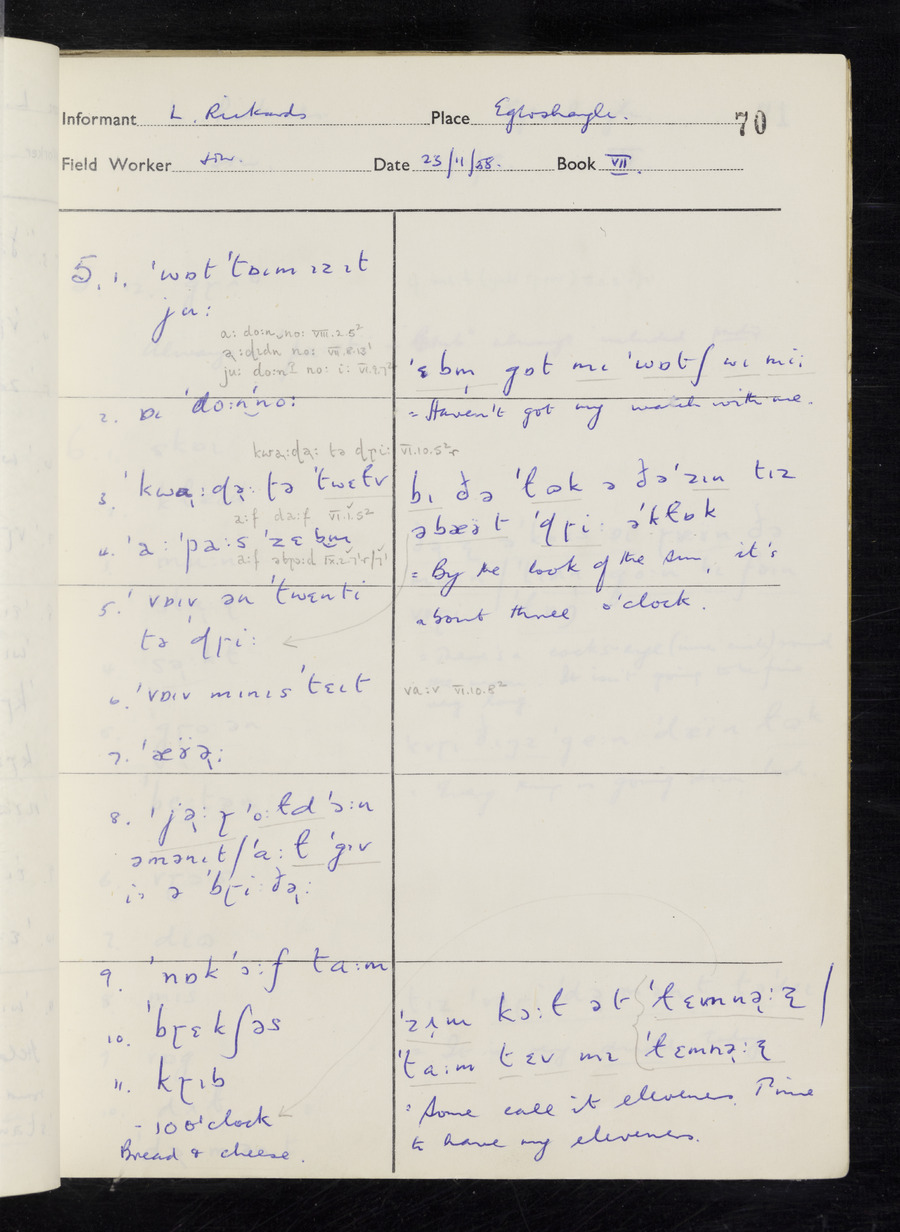 Informant L. Rickards Place Egloshayle. 70
Field Worker Date 23/11/58. Book VII.
5. 1. 'wɒt 'tɒɪm ɪz ɪt
jɑ:
a: do:n no: VIII.2.5²
no: VII.8.13¹
ju: do:nʔ no: i: VI.
2. ɒɪ 'do:n'no:
kwaɻ:ɖəɻ: tə ɖɽi: VI.10.5²
3. 'kwaɻ:ɖəɻ: tə 'twɛɫv
a:f da:f VI.1.5²
4. 'a: 'pa:s 'zɛbm̩
5. 'vɒɪv ən 'twɛnti
tə 'ɖɽi:
6. 'vɒɪv mɪnɪs 'tɛɪt
7. 'æʊ̈əɻ:
8. 'jəɻ:ɽ 'o:ɫd 'ɔ:n
əmənɪt/'a:ɫ 'gɪv
is ə 'bɽi:ðəɻ:
9. 'nɒk 'ɔ:f ta:m
10. 'bɽɛkʃəs
11. kɽɪb
- 10 o'clock
Bread & cheese.
'ɛbm̩ gɒt mɪ 'wɒtʃ wɪ mi:
= Haven't got my watch with me.
bɪ ðə 'ɫʊk ə ðə'zɪn tɪz
əbæʊ̈t 'ɖɽi: ə'kɫɒk
= By the look of the sun, it's
about three o'clock.
va:v VI.10.8²
'zɪ̣m kɔ:ɫ ət 'ɫɛvmnəɻ:z /
'ta:m t ɛv mɪ 'ɫɛmnəɻ:z
= Some call it eleveners. Time
to have my eleveners.